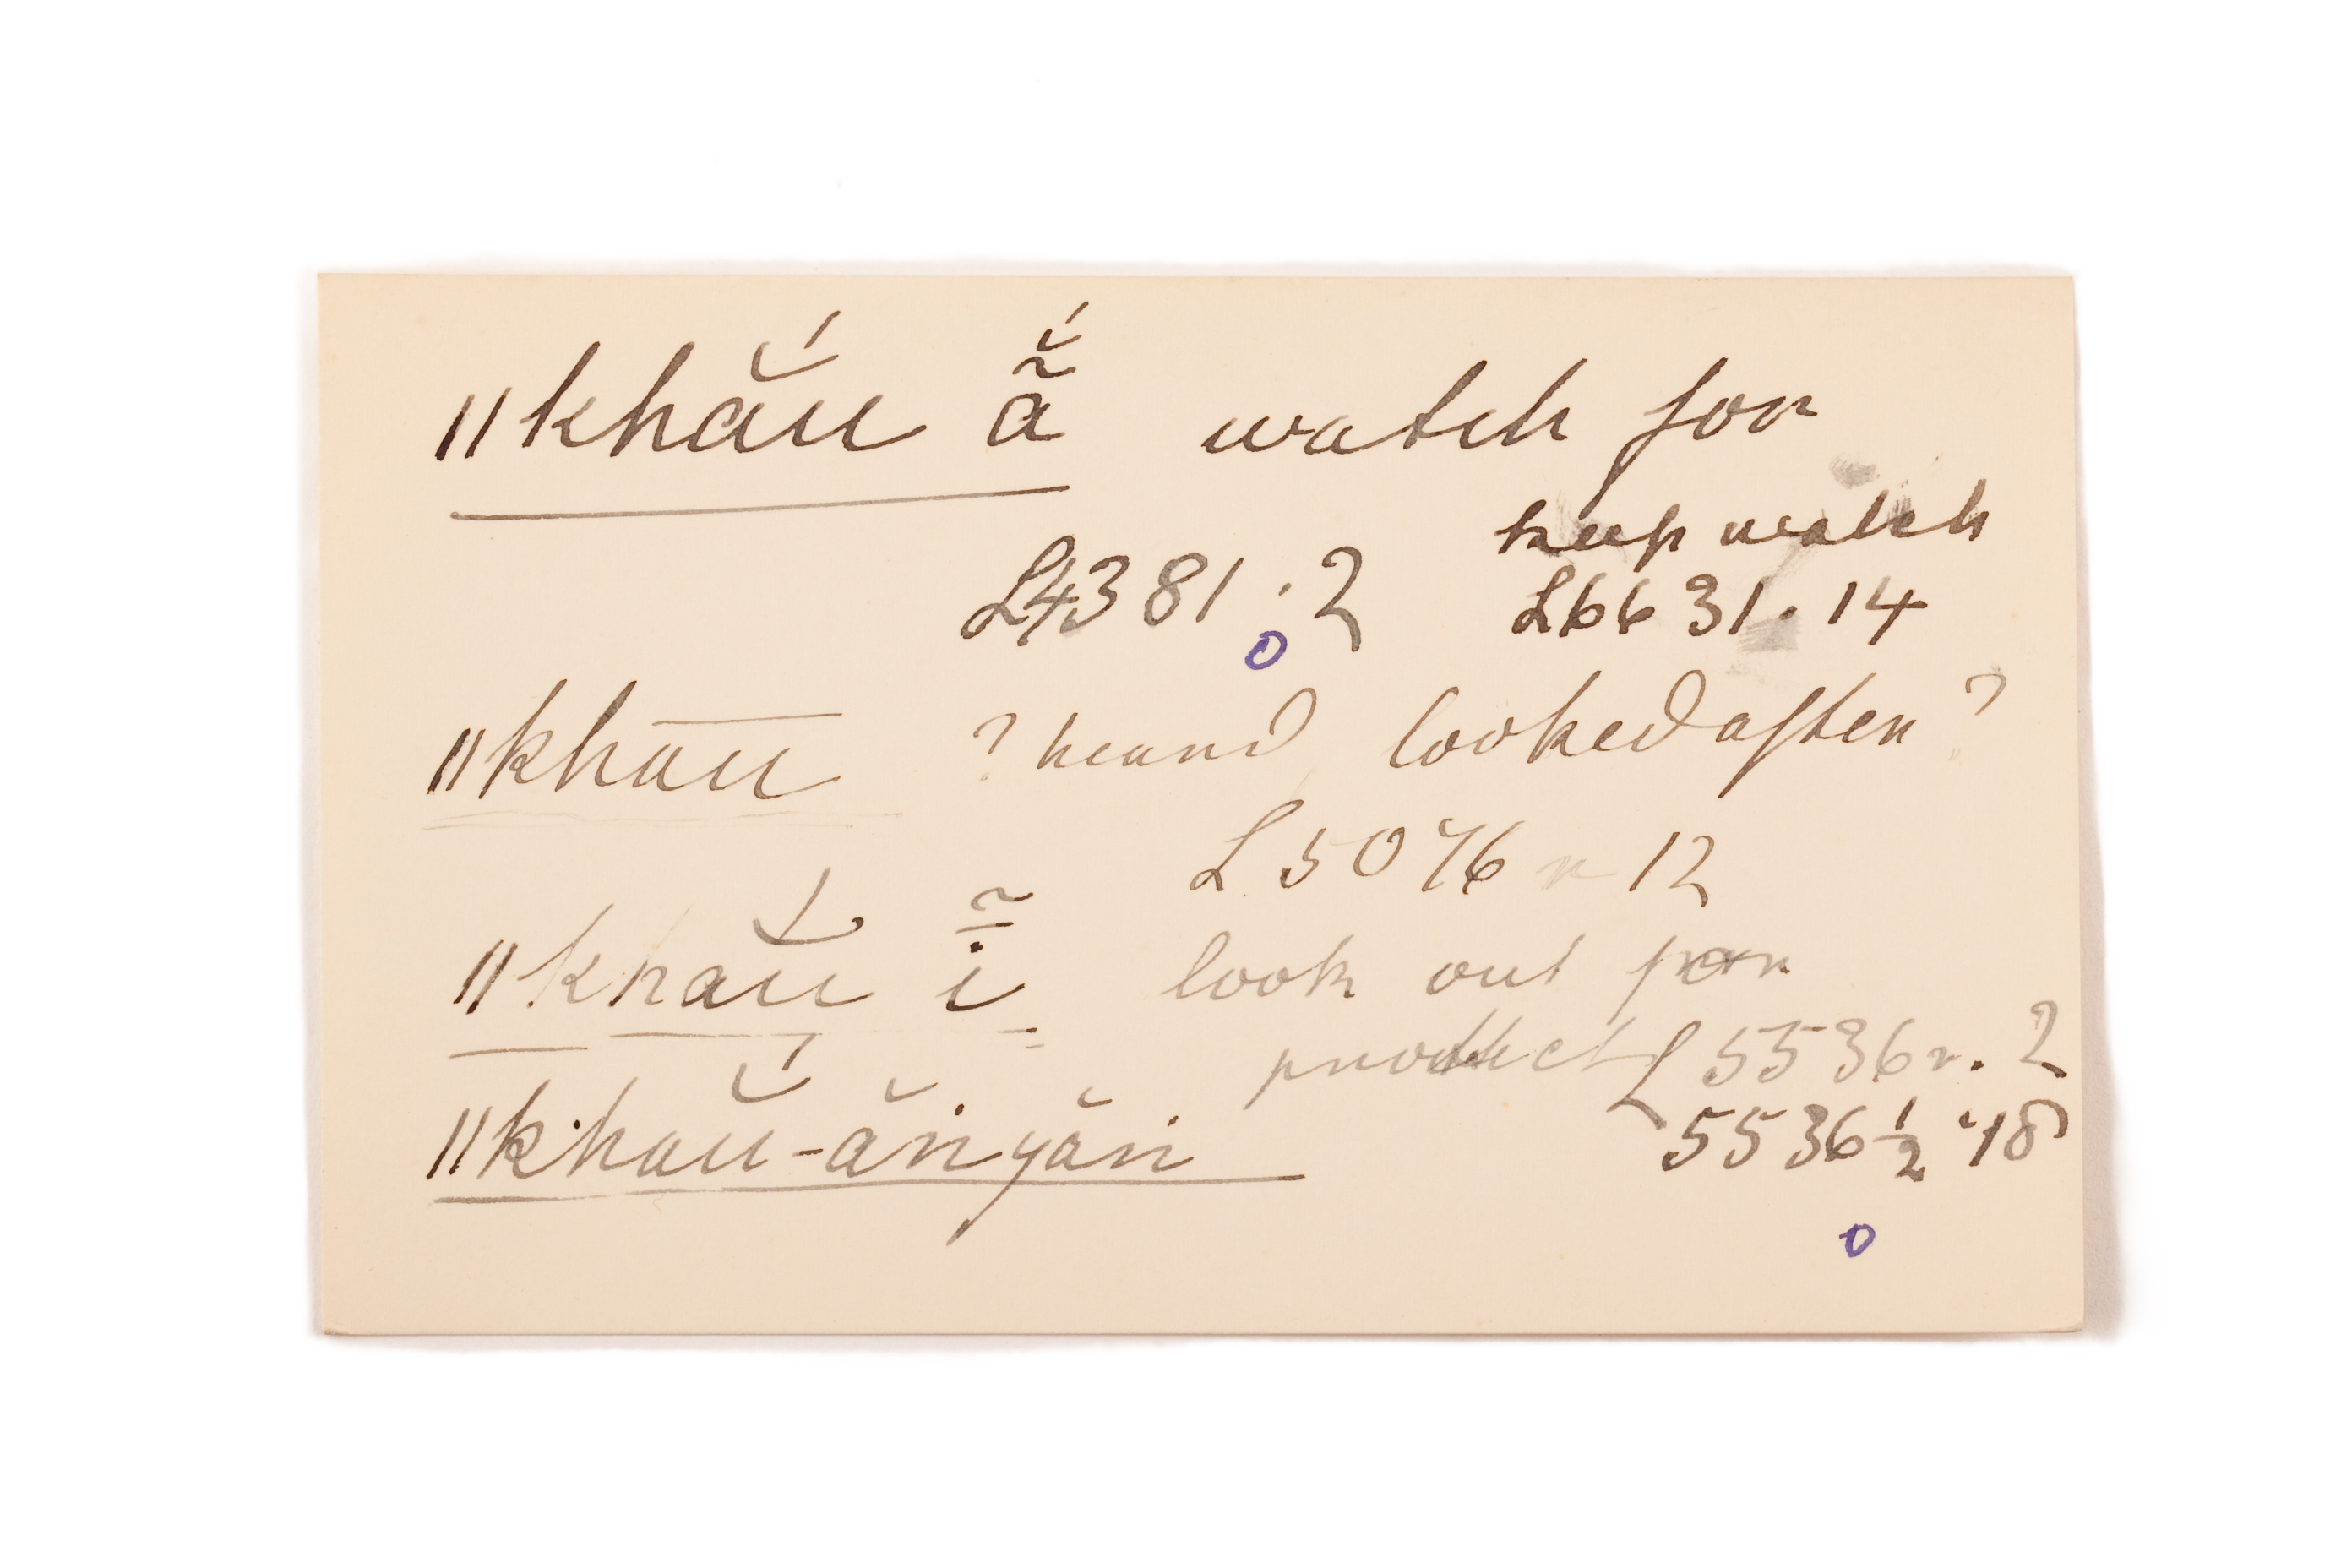 ǁkhắu ã̆́ watch for
keep watch
L4381.2 L6631.14
o
ǁkhāū ? heard looked after ?
L 5076 r 12
ǁkhắu ĩ̄ look out for
protect L 5536 r. 2
5536 ½ r 18
ǁkhắu-ăṅyăṅ
o